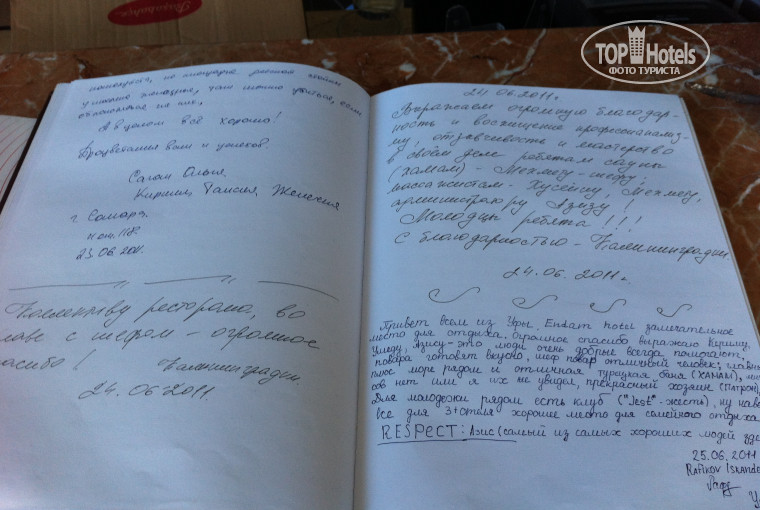 TOP Hotels
ФОТО ТУРИСТА
А в целом всё хорошо!
Процветания вам и успехов.
Ольга
Кирилл, Таисия, Женечка
г. Самара
23.06.2011.
Коллективу ресторана, во
главе с шефом - огромное
спасибо! Калининградцы.
24.06.2011.
24.06.2011г.
Выражаем огромную благодар-
ность и восхищение профессионализ-
му, отзывчивость и мастерство
в своём деле ребятам сауны
(хамам) - Мехмеу - шефу,
массажистам - Хусейну, Мехмеу,
администратору Азизу!
Молодцы ребята!!!
С благодарностью - Калининградцы
24.06.2011г.
Привет всем из Уфы. Endam hotel замечательное
место для отдыха, огромное спасибо выражаю Кириму,
Умеду, Азису - это люди очень добрые всегда помогают,
повара готовят вкусно, шеф повар отличный человек;
плюс море рядом и отличная турецкая баня (ХАМАМ),
сов нет или я их не увидел, прекрасный хозяин (Патрон),
Для молодежи рядом есть клуб ("Jest" - жесть), ну
все для 3*отеля хорошее место для семейного отдыха
RESPECT: Азис (самый из самых хороших людей
25.06.2011
RAFIKOV ISKANDE